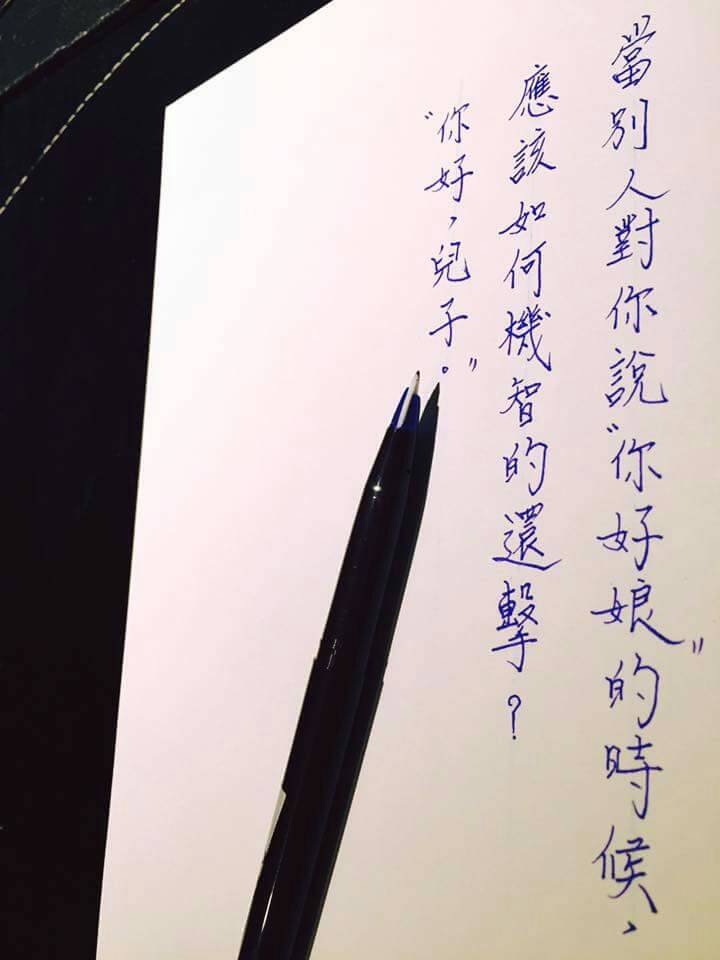 當別人對你說“你好娘”的時候，
應該如何機智的還擊？
“你好，兒子。”